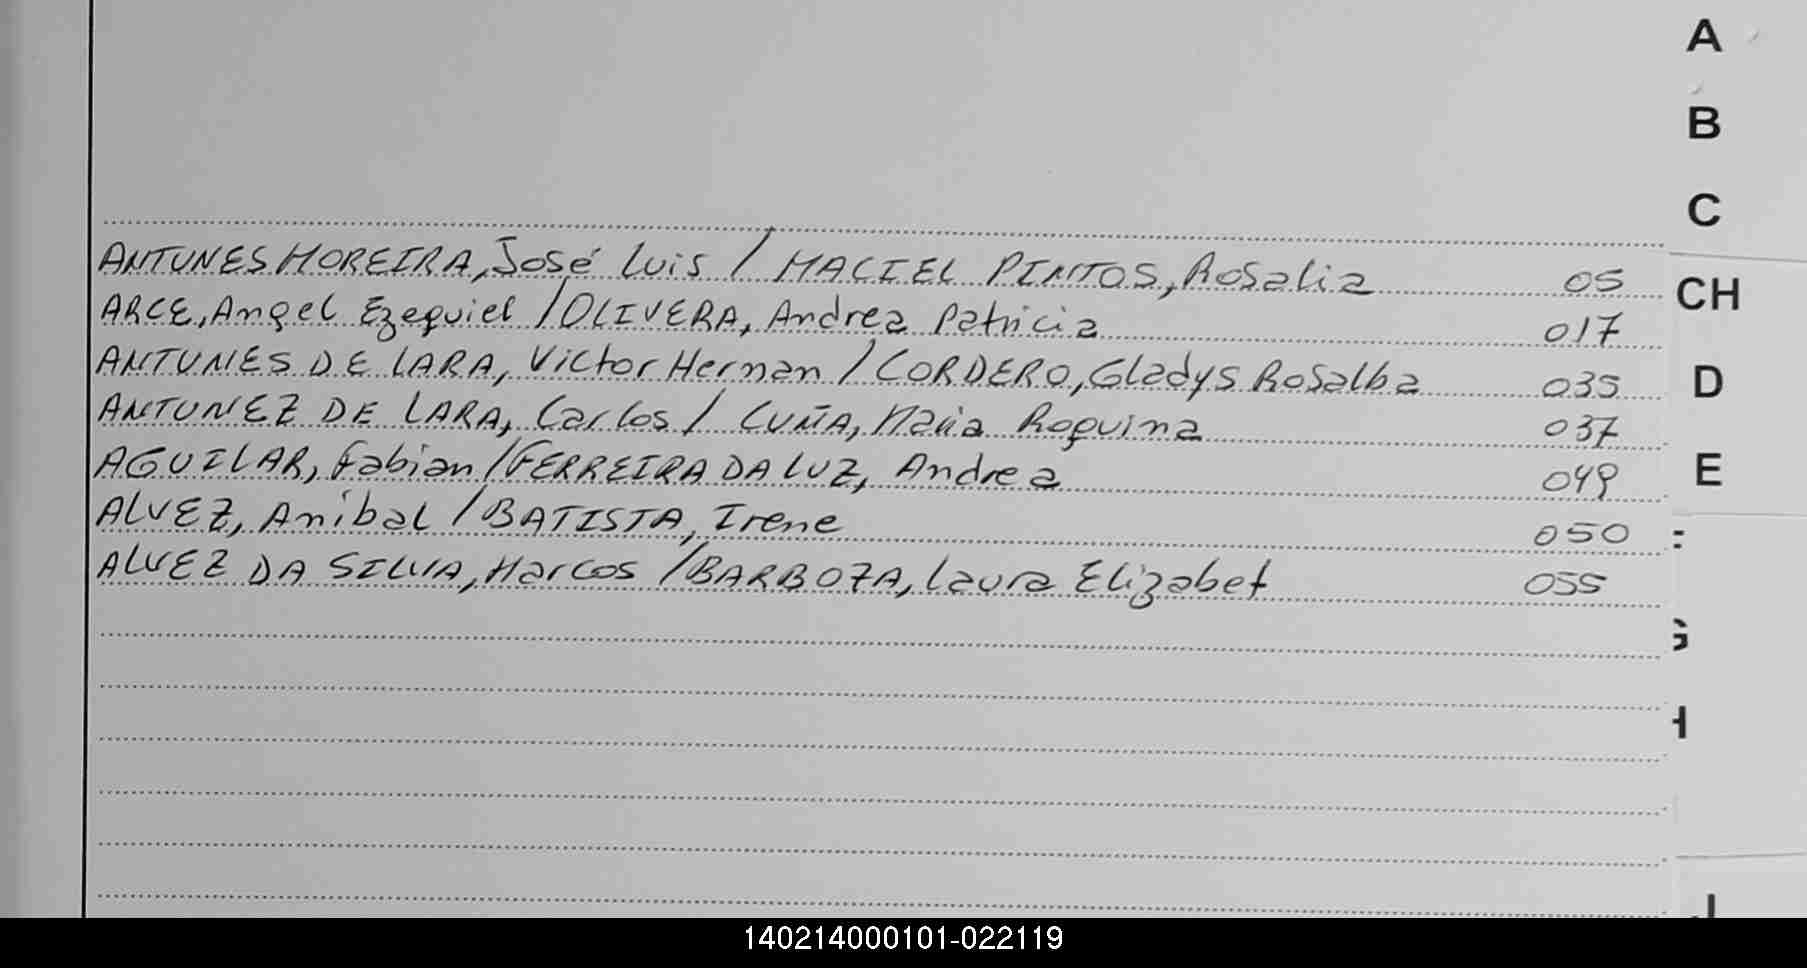 A
B
C
ANTUNES MOREIRA, José Luis / MACIEL PINTOS, Rosalia 05
CH
ARCE, Angel Ezequiel / OLIVERA, Andrea Patricia 017
ANTUNES DE LARA, Victor Hernan / CORDERO, Gladys Rosalba 035
D
ANTUNEZ DE LARA, Carlos / CUÑA, Maria Roquina 037
AGUILAR, Fabian / FERREIRA DA LUZ, Andrea 049
E
ALVEZ, Anibal / BATISTA, Irene 050
ALVEZ DA SILVA, Marcos / BARBOZA, Laura Elizabet 055
G
H
J
140214000101-022119